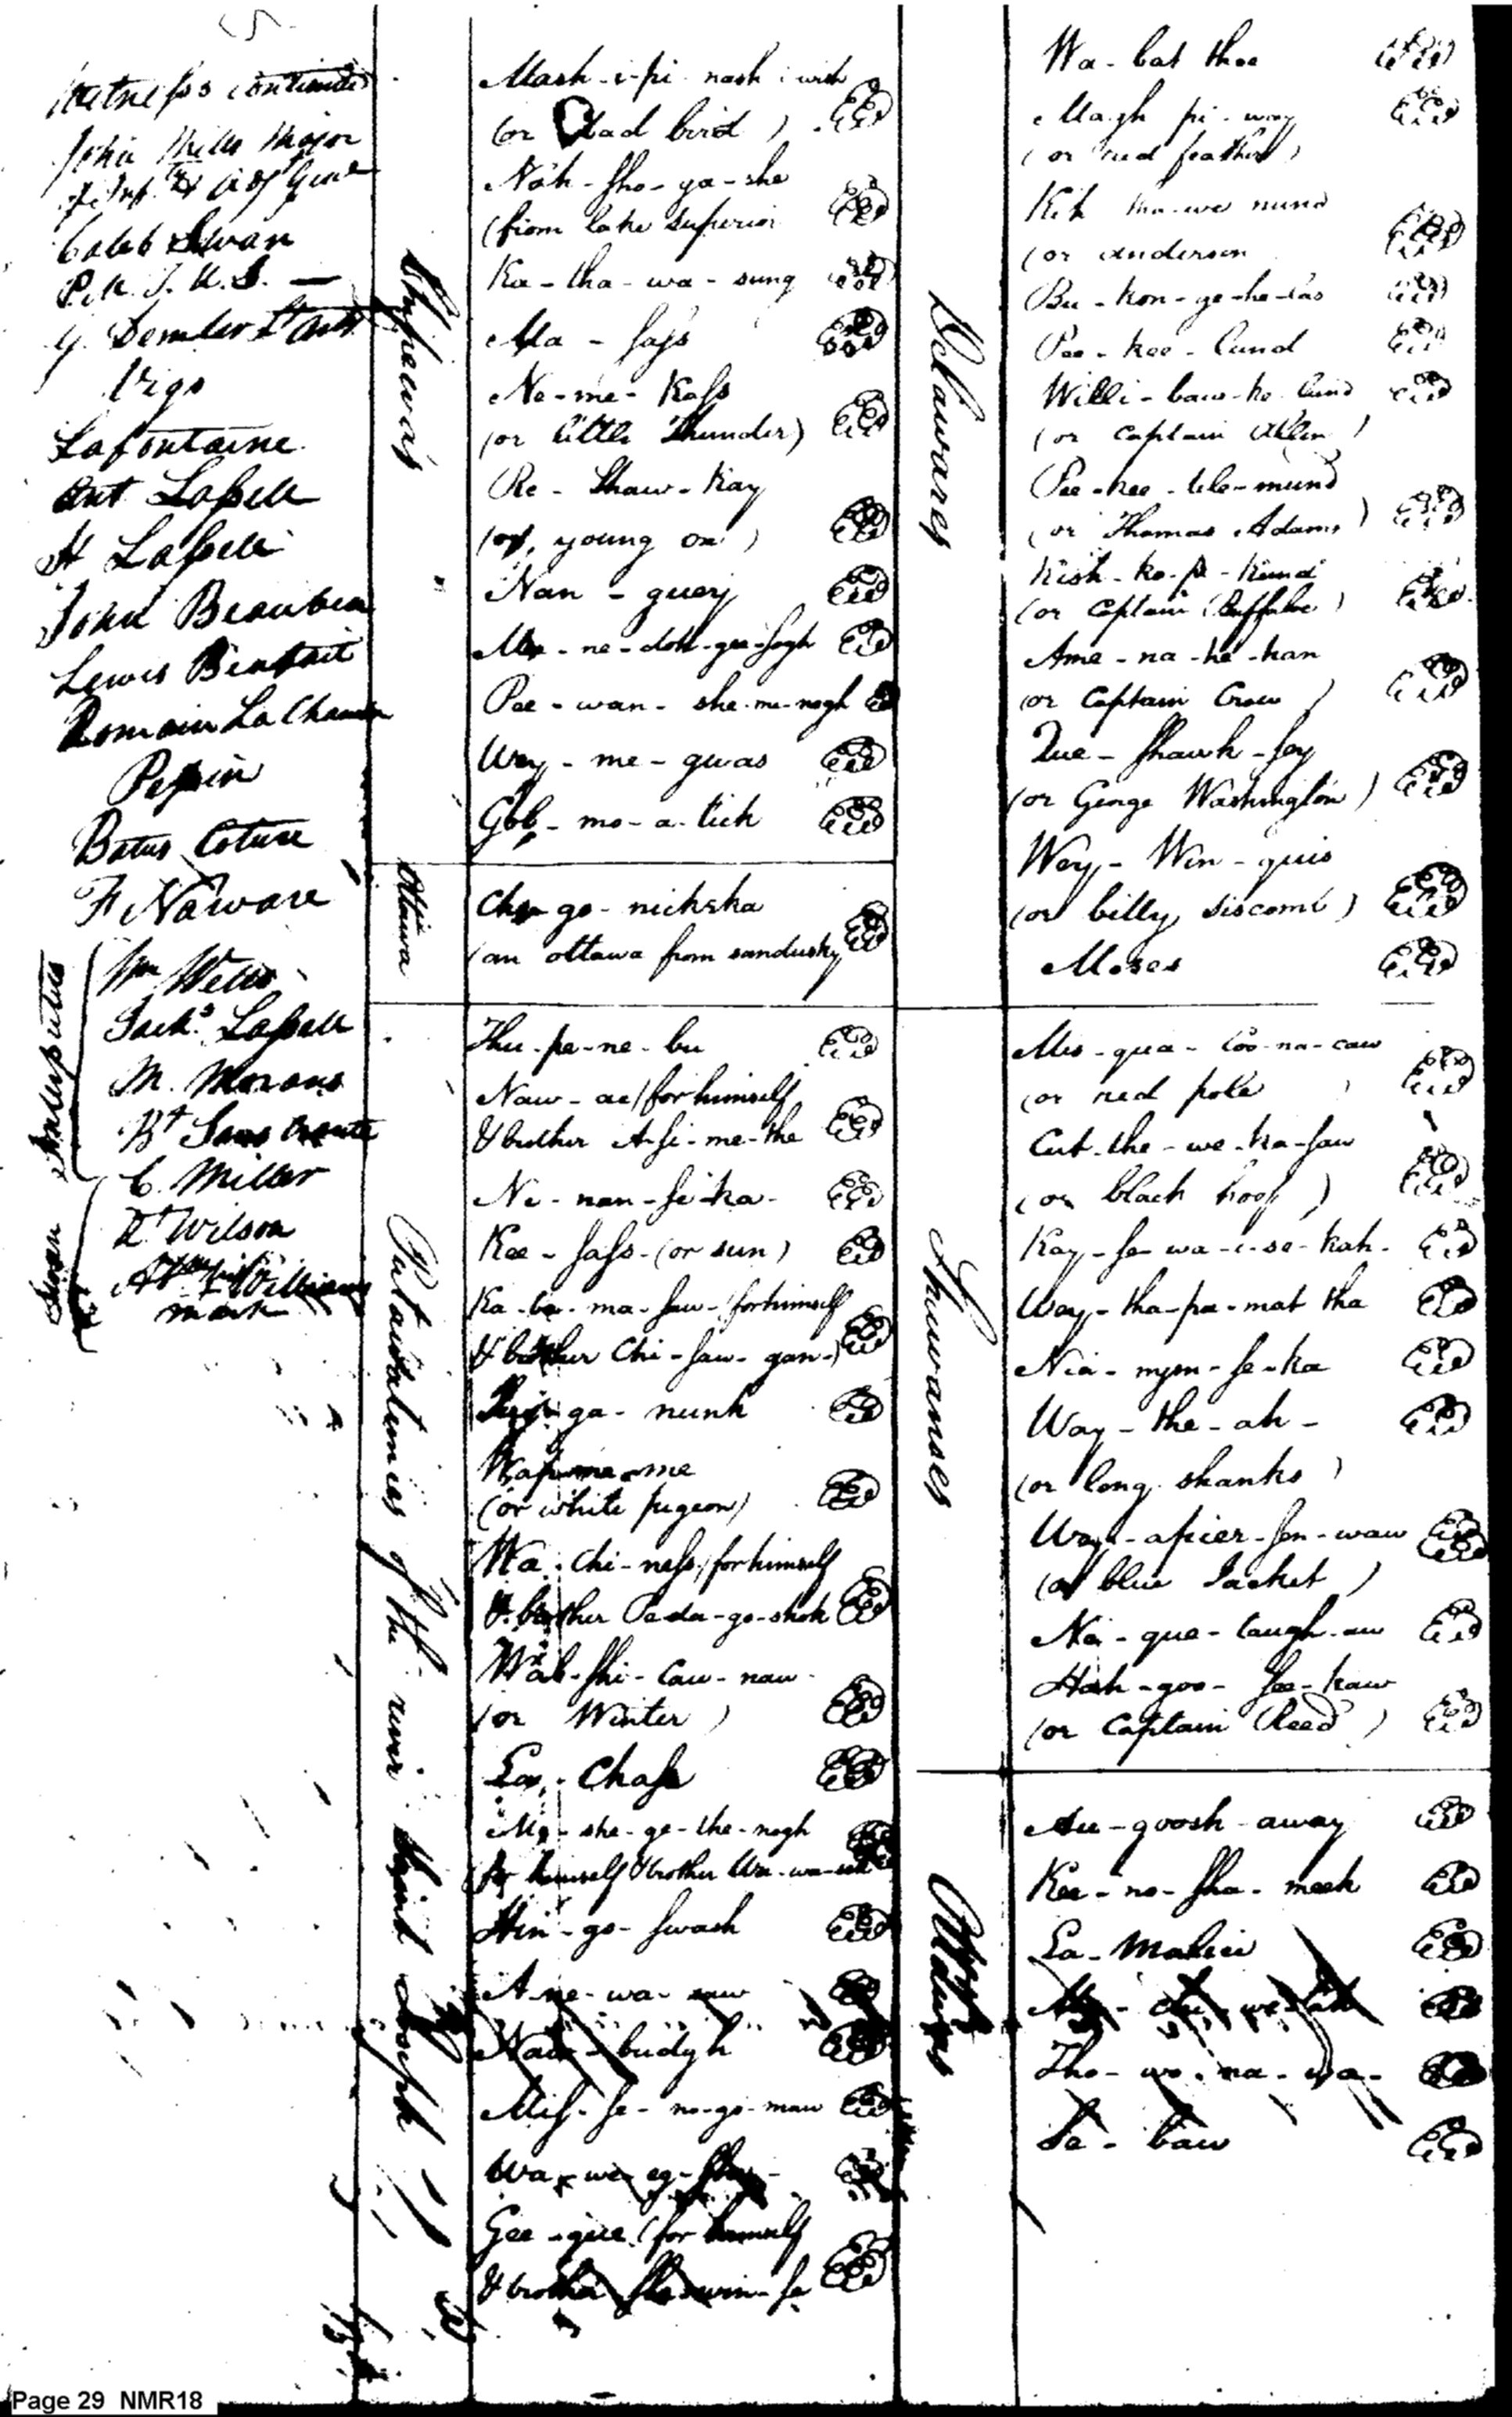 Witness continued
John Mills Major
of Inf. & Adj Genl
Caleb Swan
P. M. T. U. S. —
G. Demler Lt Art
Vigo
Lafontaine
Ant Lasselle
H Lasselle
John Beaubien
Lewis Beaufait
Romain La Chambre
Pepin
Batus Coture
F Navarre
Wm Wells
Jacks Lasselle
M. Morans
Bt Sans Crainte
C. Miller
Rt Wilson
Abm Williams
his
mark
Sworn
Interpreters
Chipewas
Mash-i-pi-nash-i-wish
(or bad bird)
Nah-sho-ga-she
(from lake Superior
Ka-tha-wa-sung
Ma-sass
Ne-me-Kass
(or little Thunder)
Pe-Shaw-Kay
(or, young ox)
Nan-guey
Me-ne-doh-gee-sogh
Pee-wan-she-me-nogh
Wey-me-gwas
Gob-mo-a-tick
Ottawa
Che-go-nickska
(an ottawa from sandusky
Putawatumies of the river Saint Joseph
Thu-pe-ne-bu
Naw-ac/for himself
& brother A-si-me-the
Ne-nan-se-ka-
Kee-sass-(or sun)
Ka-ba-ma-saw-(for himself
& brother Chi-saw-gan-)
Sug-ga-nunk
Wap-me-me
(or white pigeon)
Wa-chi-ness/for himself
& brother Pe-da-go-shok
Wab-shi-caw-naw-
(or Winter)
La-Chasse
Me-she-ge-the-nogh
for himself & brother Wa-wa-sek
Hin-go-swash
A-ne-wa-saw
Naw-budgh
Miss-se-no-go-maw
Wa-we-eg-she-
Gee-que (for himself
& brother She-win-se
Delawares
Wa-bat thoe
Magh pi-way
(or red feather)
Kik tha-we nund
(or anderson
Bu-kon-ge-he-las
Pee-kee-lund
Welle-baw-ke-lund
(or Captain
Pee-kee-tele-mund
(or Thomas Adams)
Kish-ko-pe-Kund
(or Captain Buffaloe)
Ame-na-he-han
(or Captain Crow)
Que-Shawk-sey
(or George Washington)
Wey-Win-quis
(or billy siscomb)
Moses
Shawanoes
Mis-qua-Coo-na-caw
(or red pole)
Cut-the-we-ka-saw
(or black hoof)
Kay-se-wa-e-se-kah-
Wey-tha-pa-mat tha
Nia-nym-se-ka
Way-the-ah-
(or long shanks)
Wey-apier-sen-waw
(or blue Jacket)
Ne-que-taugh-aw
Hah-goo-See-kaw
(or Captain Reed)
Ottawas
Au-goosh-away
Kee-no-sha-meek
La-Malice
Tho-wo-na-wa-
Se-baw
Page 29 NMR18